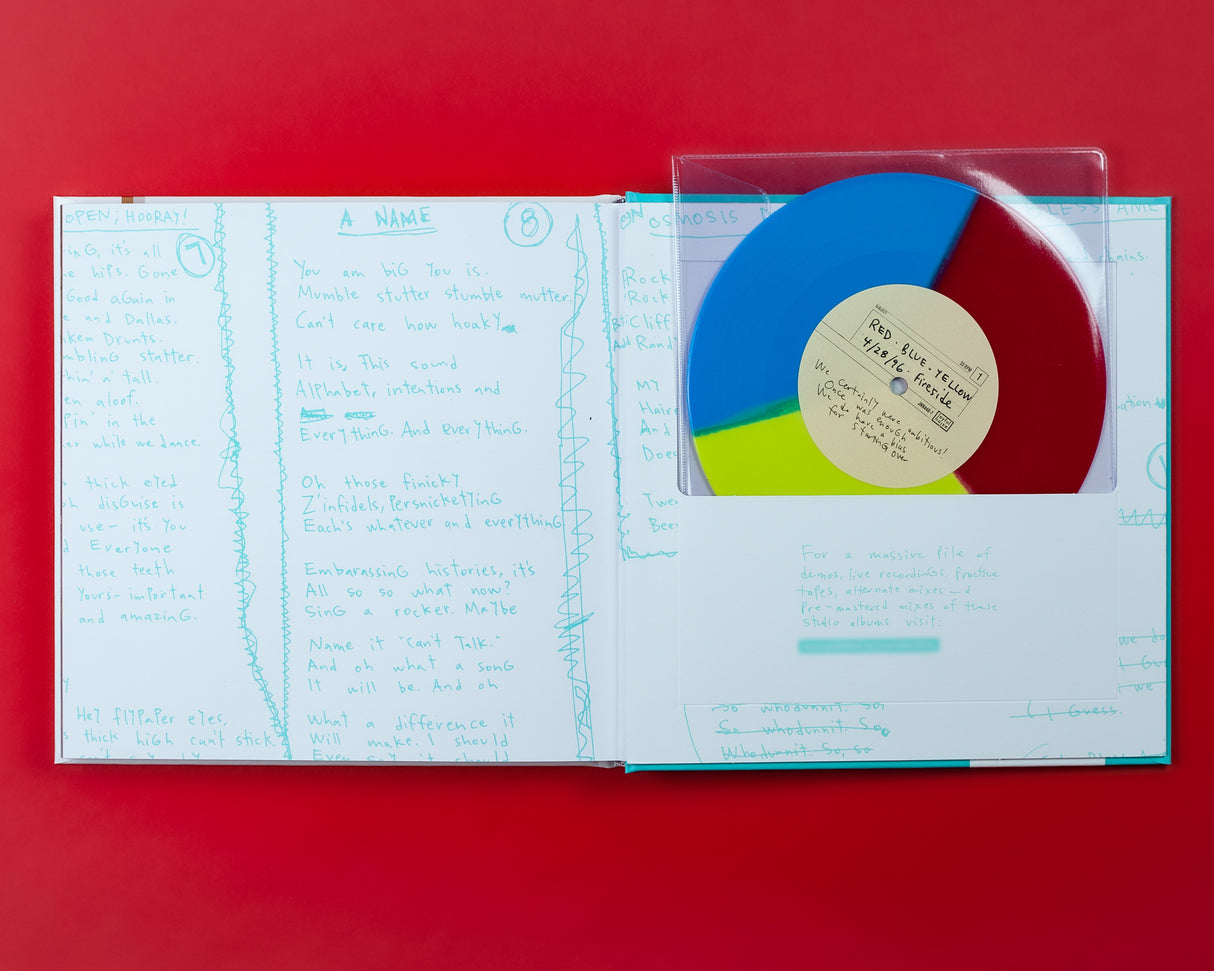 OPEN; HOORAY!
7
it's all
hips. Gone
Good aGain in
and Dallas.
Drunts.
statter.
'a' tall.
aloof.
in the
while we dance.
thick eyed
disGuise is
use- it's. You
Everyone
those teeth
Yours- important
and amazinG.
Hey flypaper eyes,
thick hiGh can't stick.
A NAME
8
You am biG You is.
Mumble stutter stumble mutter.
Can't care how hoaky
It is, This sound
Alphabet, intentions and
EverythinG. And everythinG.
Oh those finicky
Z'infidels, PersnicketyinG
Each's whatever and everythinG
EmbarassinG histories, it's
All so so what now?
SinG a rocker. Maybe
Name it "Can't Talk."
And oh what a sonG
It will be. And oh
What a difference it
Will make. I should
Even say it should
OSMOSIS
Rock
Rock
Cliff
Rand
MY
Hair
And
Does
Twe
Bee
chains.
RED. BLUE. YELLOW
4/28/96. Fireside
1
We certainly were ambitious!
Once was enouGh
We do have a bias
for startinG over
For a massive Pile of
demos, live recordinGs, Practice
tapes, alternate mixes and
Pre-mastered mixes of these
Studio albums visit:
we do
I Gue
we
So whodunnit. So,
So whodunnit. So,
Whodunnit. So, so
I Guess.